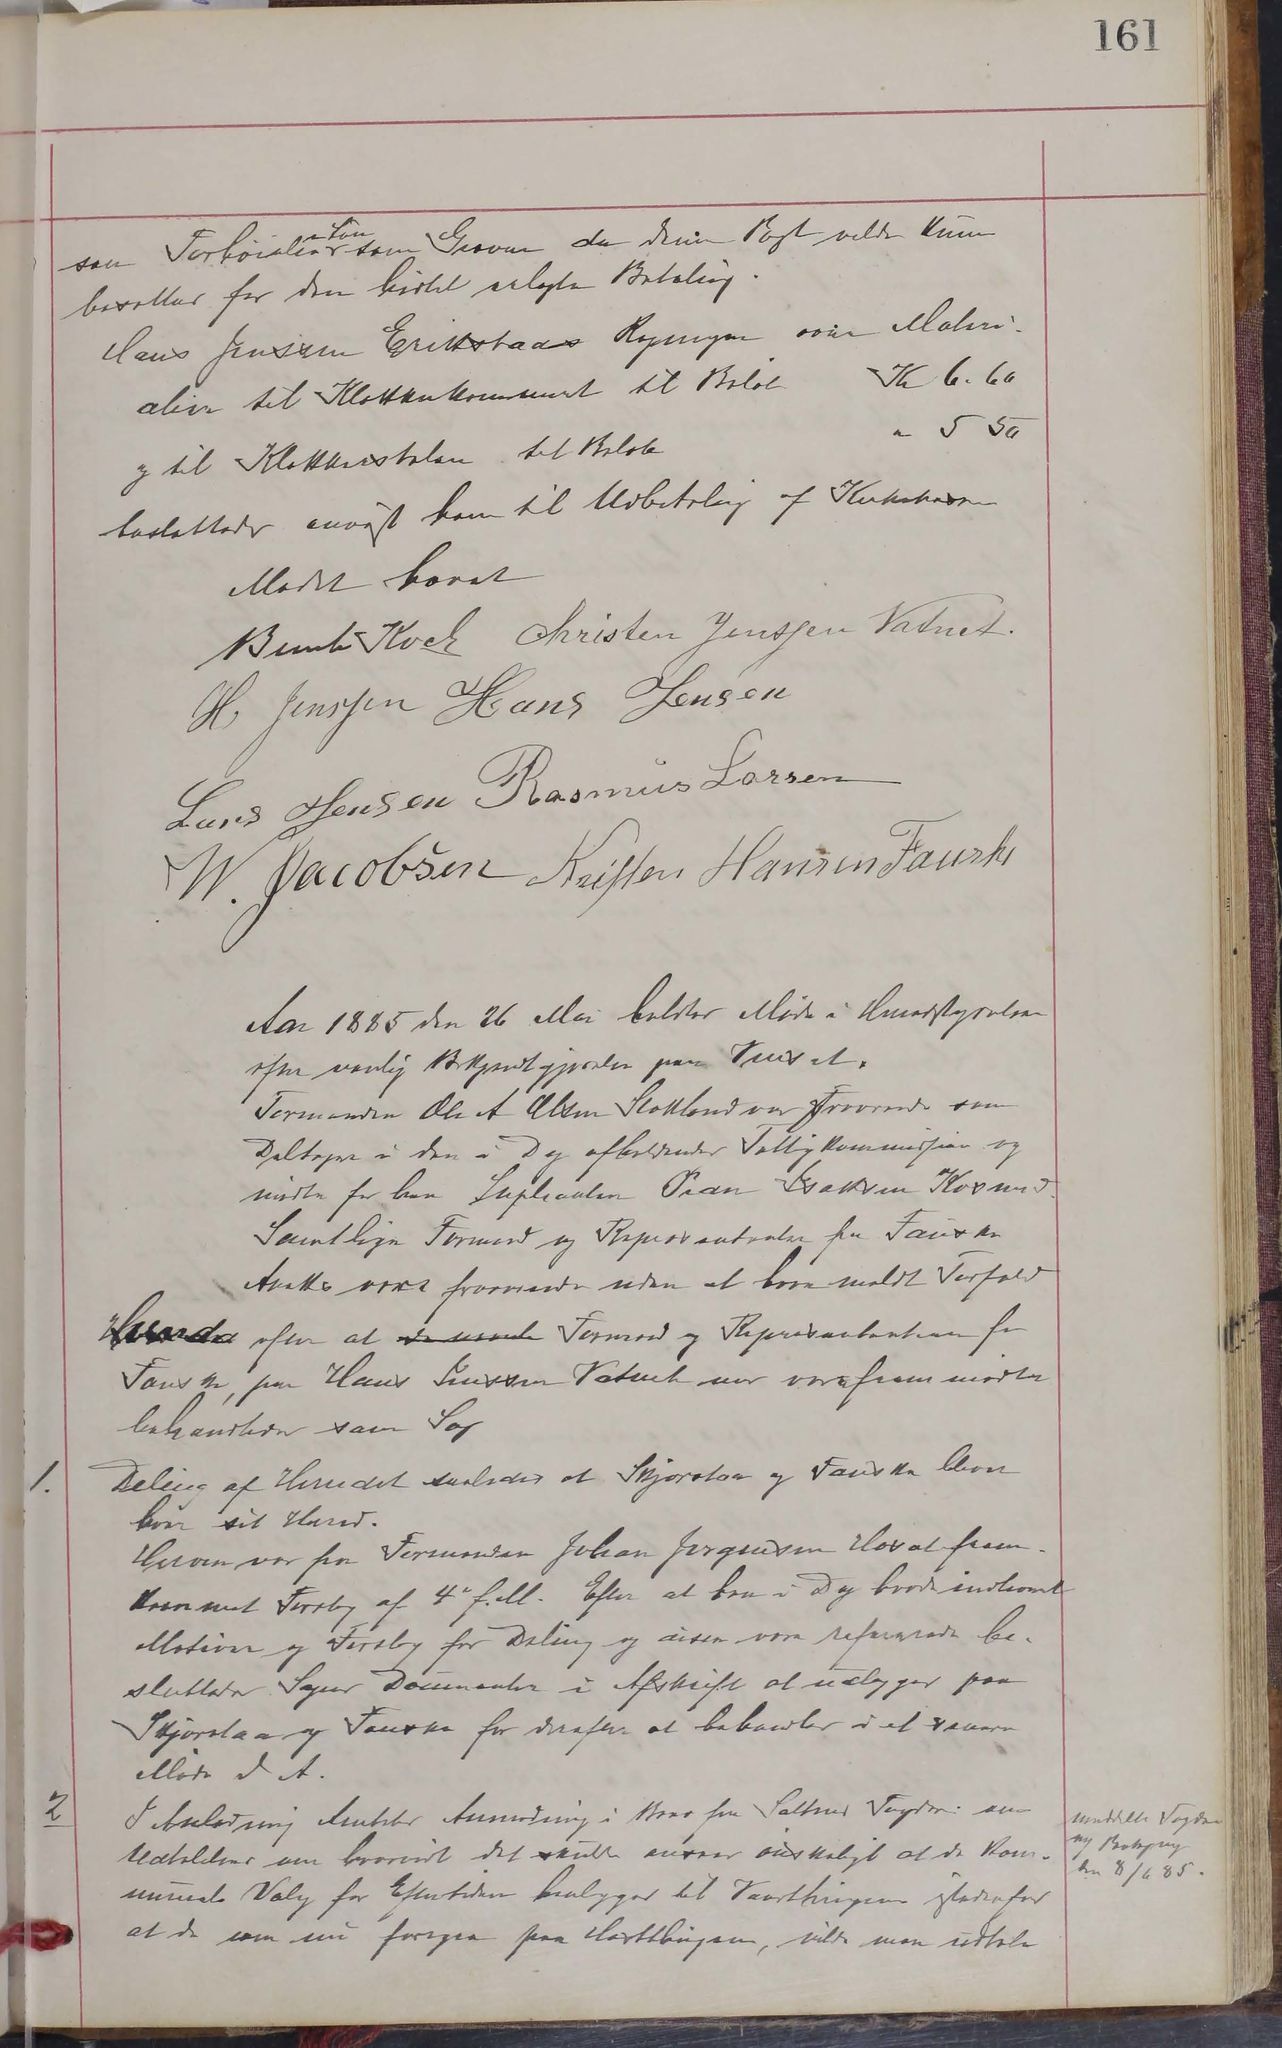 161
som Forhøielse i Løn som Graver da denne Post vilde kunne
besættes for den hidtil erlagte Betaling.
Hans Jenssen Erikstads Regninger over Materi-
alier til Klokkerkammeret til Beløb Kr 6.60
og til Klokkerstolen til Beløb " 5 50
besluttedes anvist ham til Udbetaling af Kirkekassen
Mødet hævet
Bernt Koch Christen Jenssen Vatnet.
H. Jenssen Hans Jensen
Lars Jensen Rasmus Larsen
W. Jacobsen Kristen Hansen Fauske
Aar 1885 den 26 Mai holdtes Møde i Herredstyrelsen
efter vanlig Bekjendtgjørelse paa
Formanden Ole A Olsen Stokland var fraværende som
Deltager i den i Dag afholdende Fattigkommission og
mødte for ham Suppleanten Peder Isaksen Kosmo
Samtlige Formænd og Repræsentanter fra Fauske
vare fraværende uden at have meldt Forfald
efter at Formænd og Repræsentanterne fra
Fauske, paa Hans Jenssen Vatnet nær vare frammødte
behandledes som Sag
1. Deling af Herredet saaledes at Skjerstad og Fauske blive
hver sit Herred.
Herom var fra Formanden Johan Jørgensen fram-
kommet Forslag af 4de f. M. Efter at han i Dag havde indleveret
Motiver og Forslag for Deling og disse vare refererede be-
sluttedes Sagens Dokumenter i Afskrift at udlægges paa
Skjerstad og Fauske for derefter at behandles i et senere
Møde d. A.
2 I Anledning Amtets Anmodning i Brev fra Saltens Fogderi om
Udtalelse om hvorvidt det skulde ansees ønskeligt at de Kom-
munale Valg for Eftertiden henlægges til Vaarthingene istedenfor
at de som nu foregaa paa Høstthingene, vilde man udtale
meddelt Fogden
ny Beskjed
den 8/6 85.